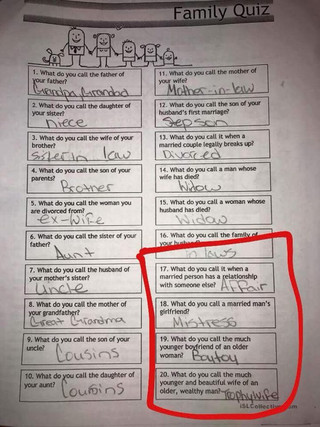 Family Quiz
1. What do you call the father of
your father?
Grandpa, Grandad
2. What do you call the daughter of
your sister?
niece
3. What do you call the wife of your
brother?
Sister In law
4. What do you call the son of your
parents?
Brother
5. What do you call the woman you
are divorced from?
ex-wife
6. What do you call the sister of your
father?
Aunt
7. What do you call the husband of
your mother's sister?
Uncle
8. What do you call the mother of
your grandfather?
Great Grandma
9. What do you call the son of your
uncle?
Cousins
10. What do you call the daughter of
your aunt?
Cousins
11. What do you call the mother of
your wife?
Mother-in-law
12. What do you call the son of your
husband's first marriage?
Stepson
13. What do you call it when a
married couple legally breaks up?
Divorced
14. What do you call a man whose
wife has died?
Widow
15. What do you call a woman whose
husband has died?
Widow
16. What do you call the family of
your husband?
in laws
17. What do you call it when a
married person has a relationship
with someone else? Affair
18. What do you call a married man's
girlfriend?
Mistress
19. What do you call the much
younger boyfriend of an older
woman? Boytoy
20. What do you call the much
younger and beautiful wife of an
older, wealthy man? Trophy Wife
iSLCollective.com